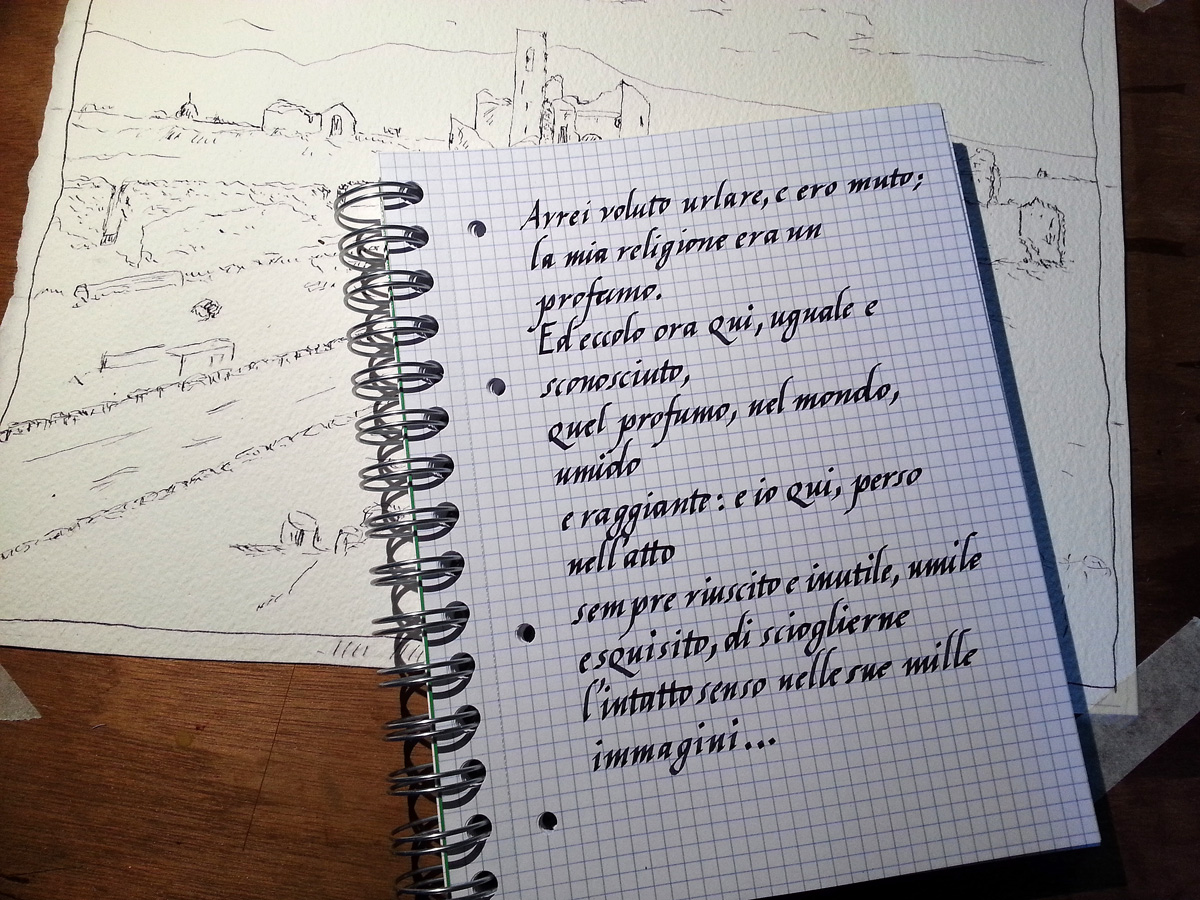 Avrei voluto urlare, e ero muto;
la mia religione era un
profumo.
Ed eccolo ora qui, uguale e
sconosciuto,
quel profumo, nel mondo,
umido
e raggiante: e io qui, perso
nell'atto
sempre riuscito e inutile, umile
e squisito, di scioglierne
l'intatto senso nelle sue mille
immagini...